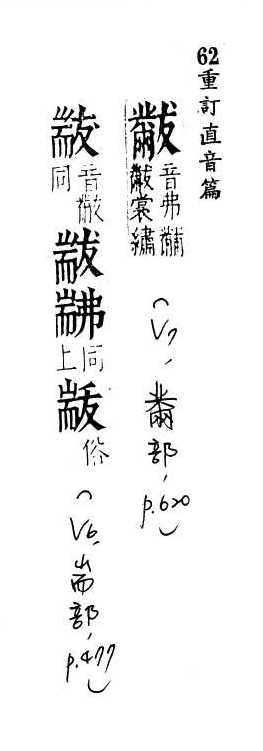 62重訂直音篇
黻音弗黼黻裳繡(V7,黹部,p.620)
音黻同同上俗(V6,耑部,p.477)